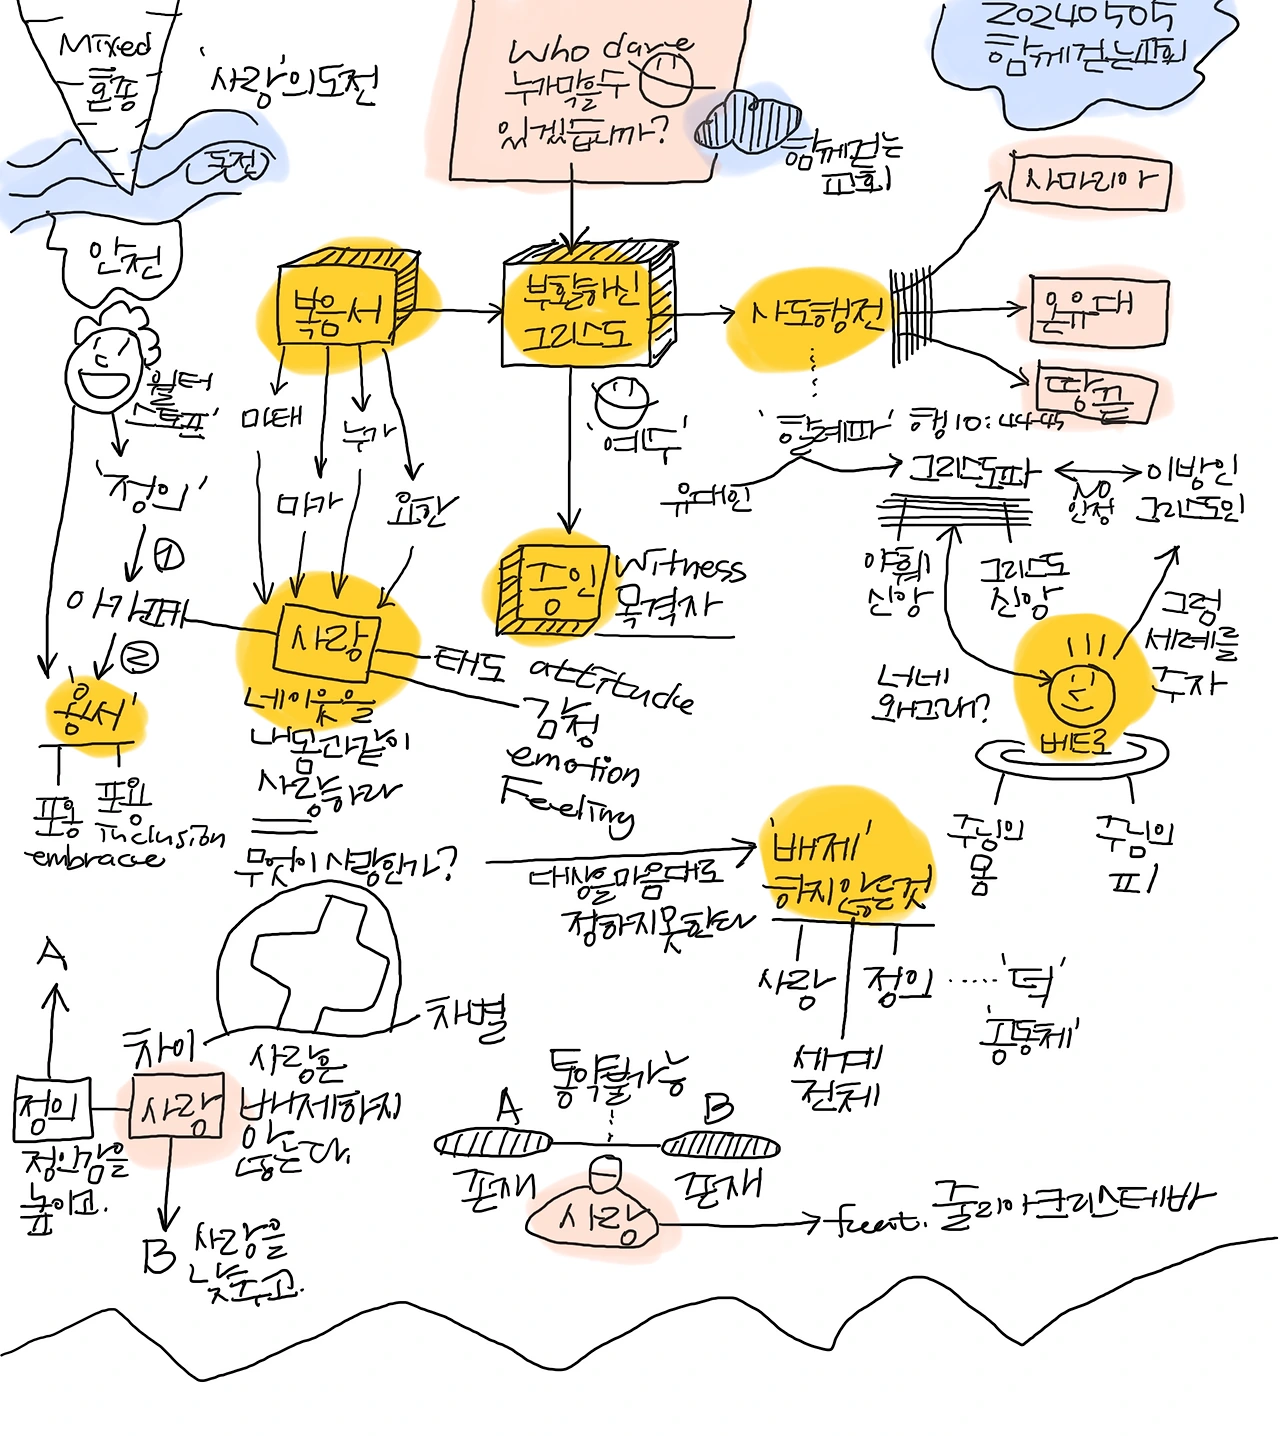 Mixed
혼종
'사랑'의 도전
도전
안전
Who dare
누가 막을 수
있겠습니까?
함께걷는
교회
20240505
함께걷는교회
사마리아
온유대
땅끝
복음서
부활하신
그리스도
사도행전
'할례파' 행10:44-45
유대인
그리스도파
이방인
그리스도인
NO
인정
야훼
신앙
그리스도
신앙
너네
왜그래?
그럼
세례를
주자
베드로
주님의
몸
주님의
피
'예수'
증인
Witness
목격자
마태
누가
마가
요한
'정의'
①
아가페
②
'용서'
포옹
embrace
포용
inclusion
사랑
태도 attitude
감정
emotion
Feeling
네이웃을
내몸과같이
사랑하라
무엇이 사랑인가?
대상을마음대로
정하지못한다
'배제'
하지않는것
사랑
정의
'떡'
'공동체'
세계
전체
차이
차별
사랑은
배제하지
않는다.
A
정의
사랑
정의감을
높이고.
B
사랑을
낮추고.
통약불가능
A
B
존재
존재
사랑
feat. 줄리아크리스테바